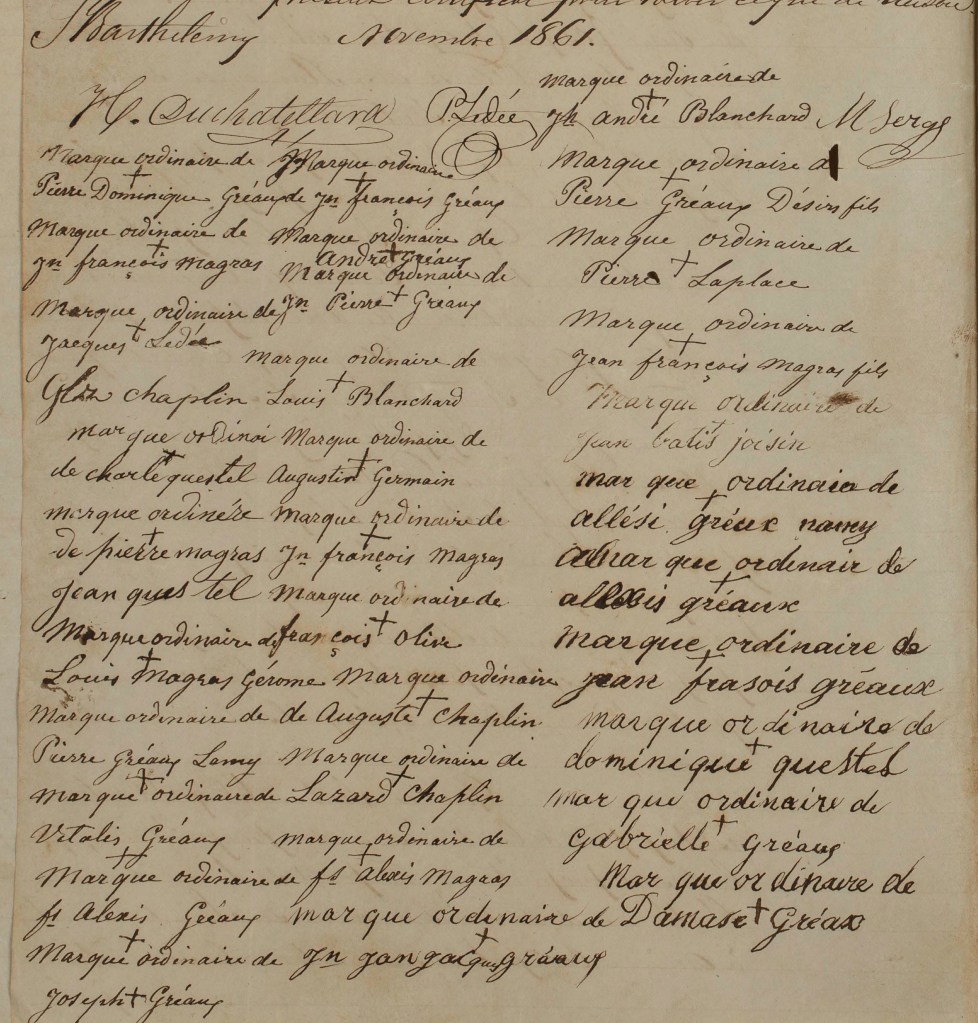 St Barthélemy Novembre 1861.
H. Duchatellard P. Ledée
Marque ordinaire de
Jh andré + Blanchard M Serge
Marque ordinaire de
Pierre + Dominique Gréaux
Marque ordinaire de
Jn françois + Magras
Marque ordinaire de
Jacques + Ledée
chaplin
marque ordinoi
de charle + questel
marque ordinére
de pierre + magras
Jean questel
Marque ordinaire de
Louis + Magras Gérome
Marque ordinaire de
Pierre Gréaux Lamy
Marque + ordinaire de
Vitalis Gréaux
Marque + ordinaire de
fs Alexis Gréaux
Marque + ordinaire de
Joseph + Gréaux
Marque ordinaire
de Jn + françois Gréaux
Marque ordinaire de
André + Gréaux
Marque ordinaire de
Jn Pierre + Gréaux
marque ordinaire de
Louis + Blanchard
Marque ordinaire de
Augustin + Germain
Marque ordinaire de
Jn françois + Magras
Marque ordinaire de
françois + Olive
Marque ordinaire
de Auguste + Chaplin
Marque ordinaire de
Lazard + Chaplin
marque ordinaire de
fs + Alexis Magras
marque ordinaire de
Jn Jacques + gréaux
Marque ordinaire de
Pierre + Gréaux Désirs fils
Marque ordinaire de
Pierre + Laplace
Marque ordinaire de
Jean françois + Magras fils
Marque ordinaire de
jean batis + joisin
mar que ordinaier de
allési + gréux namy
mar que ordenair de
allexis + gréaux
marque ordinaire de
jean + frasois gréaux
marque ordinaire de
dominique + questel
mar que ordinaire de
gabrielle + gréaux
Mar que ordinaire de
Damase + Gréax